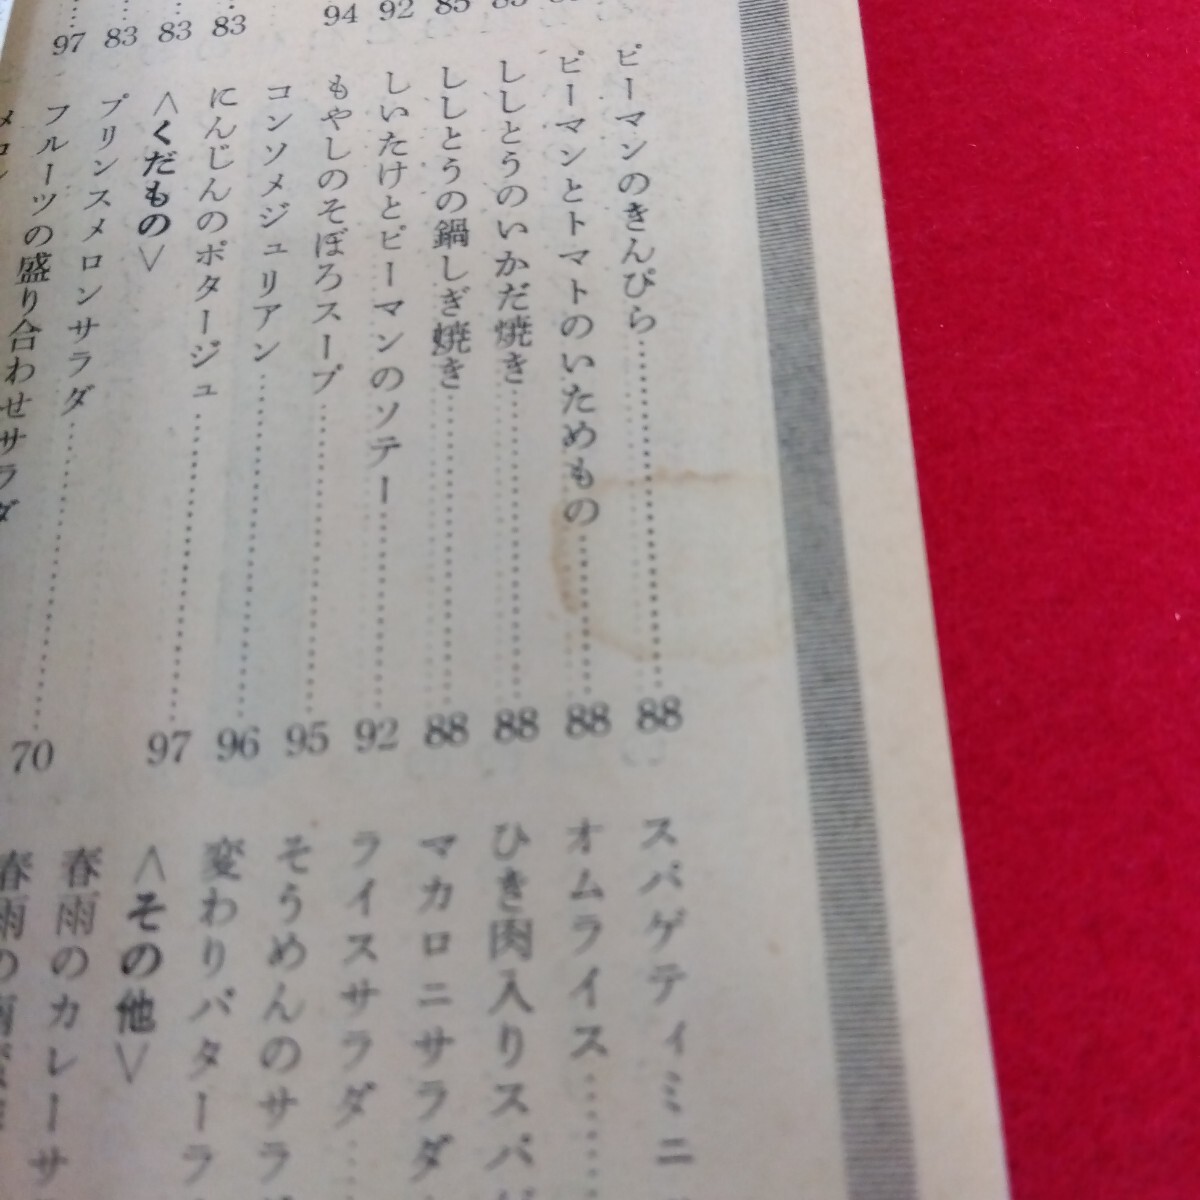 94
92
85
97
83
83
83
ピーマンのきんぴら……88
ピーマンとトマトのいためもの……88
ししとうのいかだ焼き……88
ししとうの鍋しぎ焼き……88
しいたけとピーマンのソテー……92
もやしのそぼろスープ……95
コンソメジュリアン……96
にんじんのポタージュ……97
〈くだもの〉
プリンスメロンサラダ……70
フルーツの盛り合わせサラダ
メロン
スパゲティミニ
オムライス……
ひき肉入りスパ
マカロニサラダ
ライスサラダ……
そうめんのサラ
変わりバターラ
〈その他〉
春雨のカレーサ
春雨の